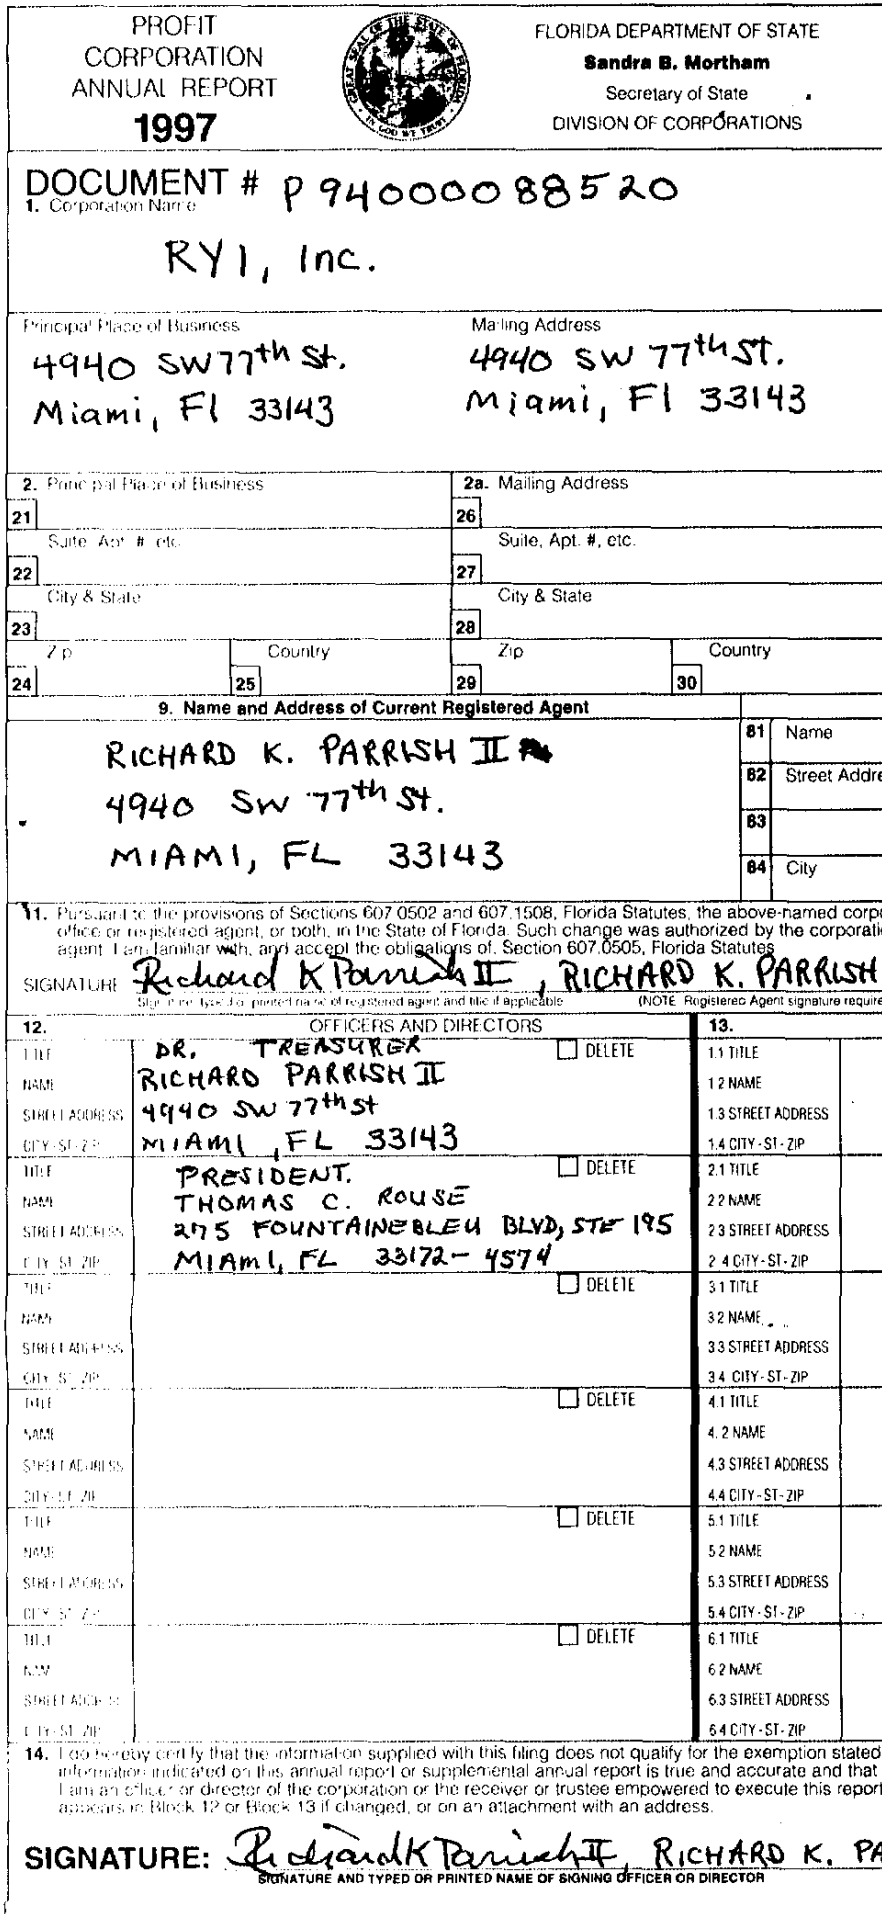 PROFIT
CORPORATION
ANNUAL REPORT
1997
GREAT SEAL OF THE STATE OF FLORIDA
IN GOD WE TRUST
FLORIDA DEPARTMENT OF STATE
Sandra B. Mortham
Secretary of State
DIVISION OF CORPORATIONS
DOCUMENT # P94000088520
1. Corporation Name
RYI, Inc.
Principal Place of Business
4940 SW 77th St.
Miami, Fl 33143
Mailing Address
4940 SW 77th ST.
Miami, Fl 33143
2. Principal Place of Business
2a. Mailing Address
21
26
Suite, Apt. #, etc.
Suite, Apt. #, etc.
22
27
City & State
City & State
23
28
Zip
Country
Zip
Country
24
25
29
30
9. Name and Address of Current Registered Agent
RICHARD K. PARRISH II
4940 SW 77th St.
MIAMI, FL 33143
81 Name
82 Street Addre
83
84 City
11. Pursuant to the provisions of Sections 607.0502 and 607.1508, Florida Statutes, the above-named corp
office or registered agent, or both, in the State of Florida. Such change was authorized by the corporati
agent. I am familiar with, and accept the obligations of, Section 607.0505, Florida Statutes
SIGNATURE Richard K Parrish II, RICHARD K. PARRISH
Signature, typed or printed name of registered agent and title if applicable (NOTE: Registered Agent signature require
12. OFFICERS AND DIRECTORS 13.
TITLE DR. TREASURER DELETE 1.1 TITLE
NAME RICHARD PARRISH II 1.2 NAME
STREET ADDRESS 4940 SW 77th St 1.3 STREET ADDRESS
CITY-ST-ZIP MIAMI, FL 33143 1.4 CITY-ST-ZIP
TITLE PRESIDENT. DELETE 2.1 TITLE
NAME THOMAS C. ROUSE 2.2 NAME
STREET ADDRESS 275 FOUNTAINEBLEU BLVD, STE 195 2.3 STREET ADDRESS
CITY-ST-ZIP MIAMI, FL 33172-4574 2.4 CITY-ST-ZIP
TITLE DELETE 3.1 TITLE
NAME 3.2 NAME
STREET ADDRESS 3.3 STREET ADDRESS
CITY-ST-ZIP 3.4 CITY-ST-ZIP
TITLE DELETE 4.1 TITLE
NAME 4.2 NAME
STREET ADDRESS 4.3 STREET ADDRESS
CITY-ST-ZIP 4.4 CITY-ST-ZIP
TITLE DELETE 5.1 TITLE
NAME 5.2 NAME
STREET ADDRESS 5.3 STREET ADDRESS
CITY-ST-ZIP 5.4 CITY-ST-ZIP
TITLE DELETE 6.1 TITLE
NAME 6.2 NAME
STREET ADDRESS 6.3 STREET ADDRESS
CITY-ST-ZIP 6.4 CITY-ST-ZIP
14. I do hereby certify that the information supplied with this filing does not qualify for the exemption stated
information indicated on this annual report or supplemental annual report is true and accurate and that
I am an officer or director of the corporation or the receiver or trustee empowered to execute this report
appears in Block 12 or Block 13 if changed, or on an attachment with an address.
SIGNATURE: Richard K Parrish II, RICHARD K. PA
SIGNATURE AND TYPED OR PRINTED NAME OF SIGNING OFFICER OR DIRECTOR